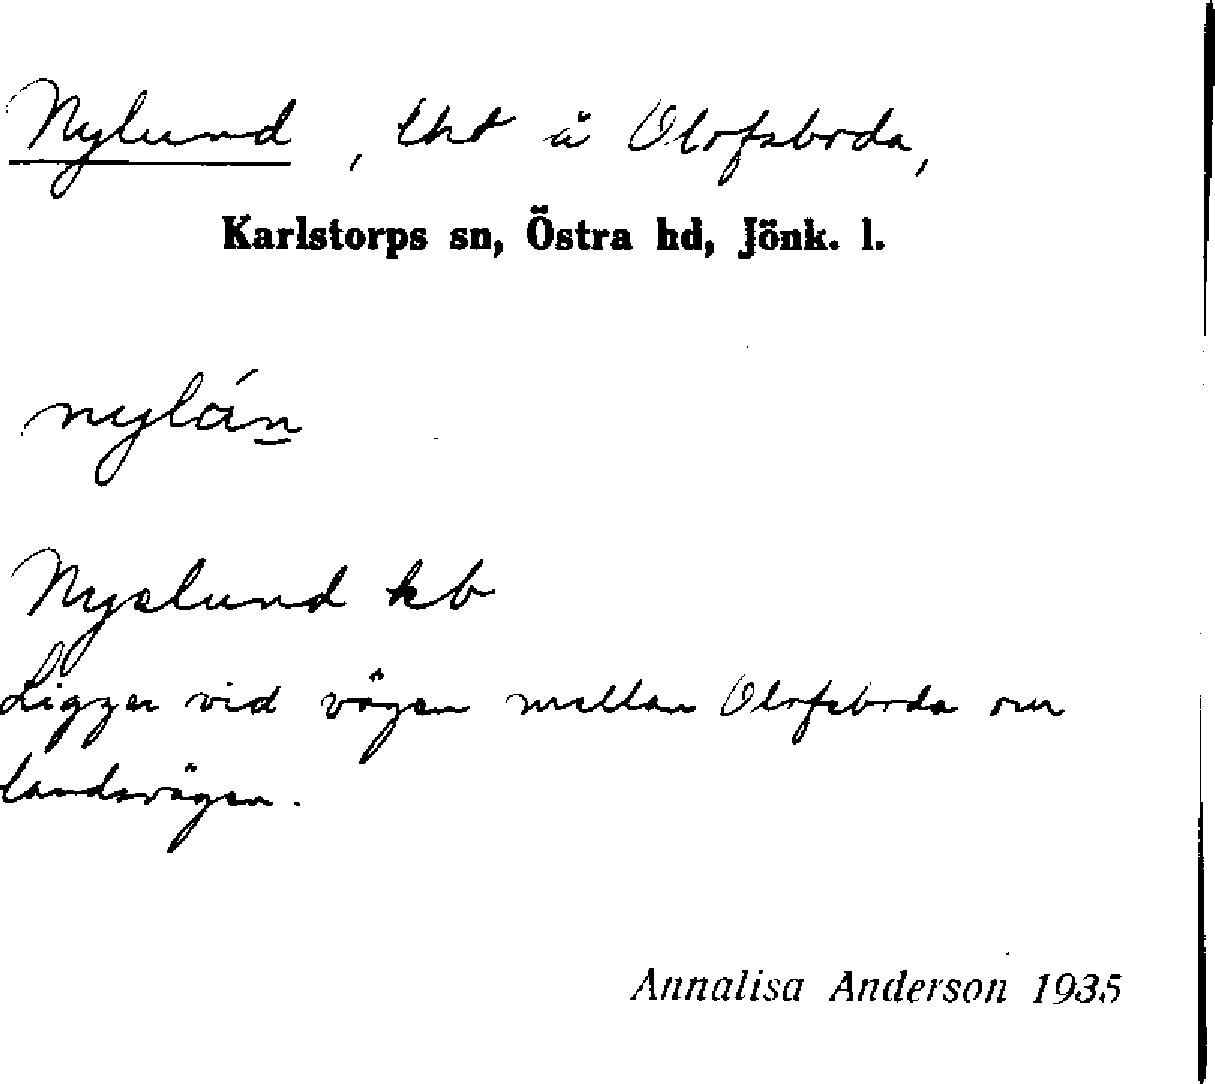 Nylund, lht å Olofsboda,
Karlstorps sn, Östra hd, Jönk. l.
nylán
Nyslund kb
Ligger vid vägen mellan Olofsboda och
landsvägen.
Annalisa Anderson 1935